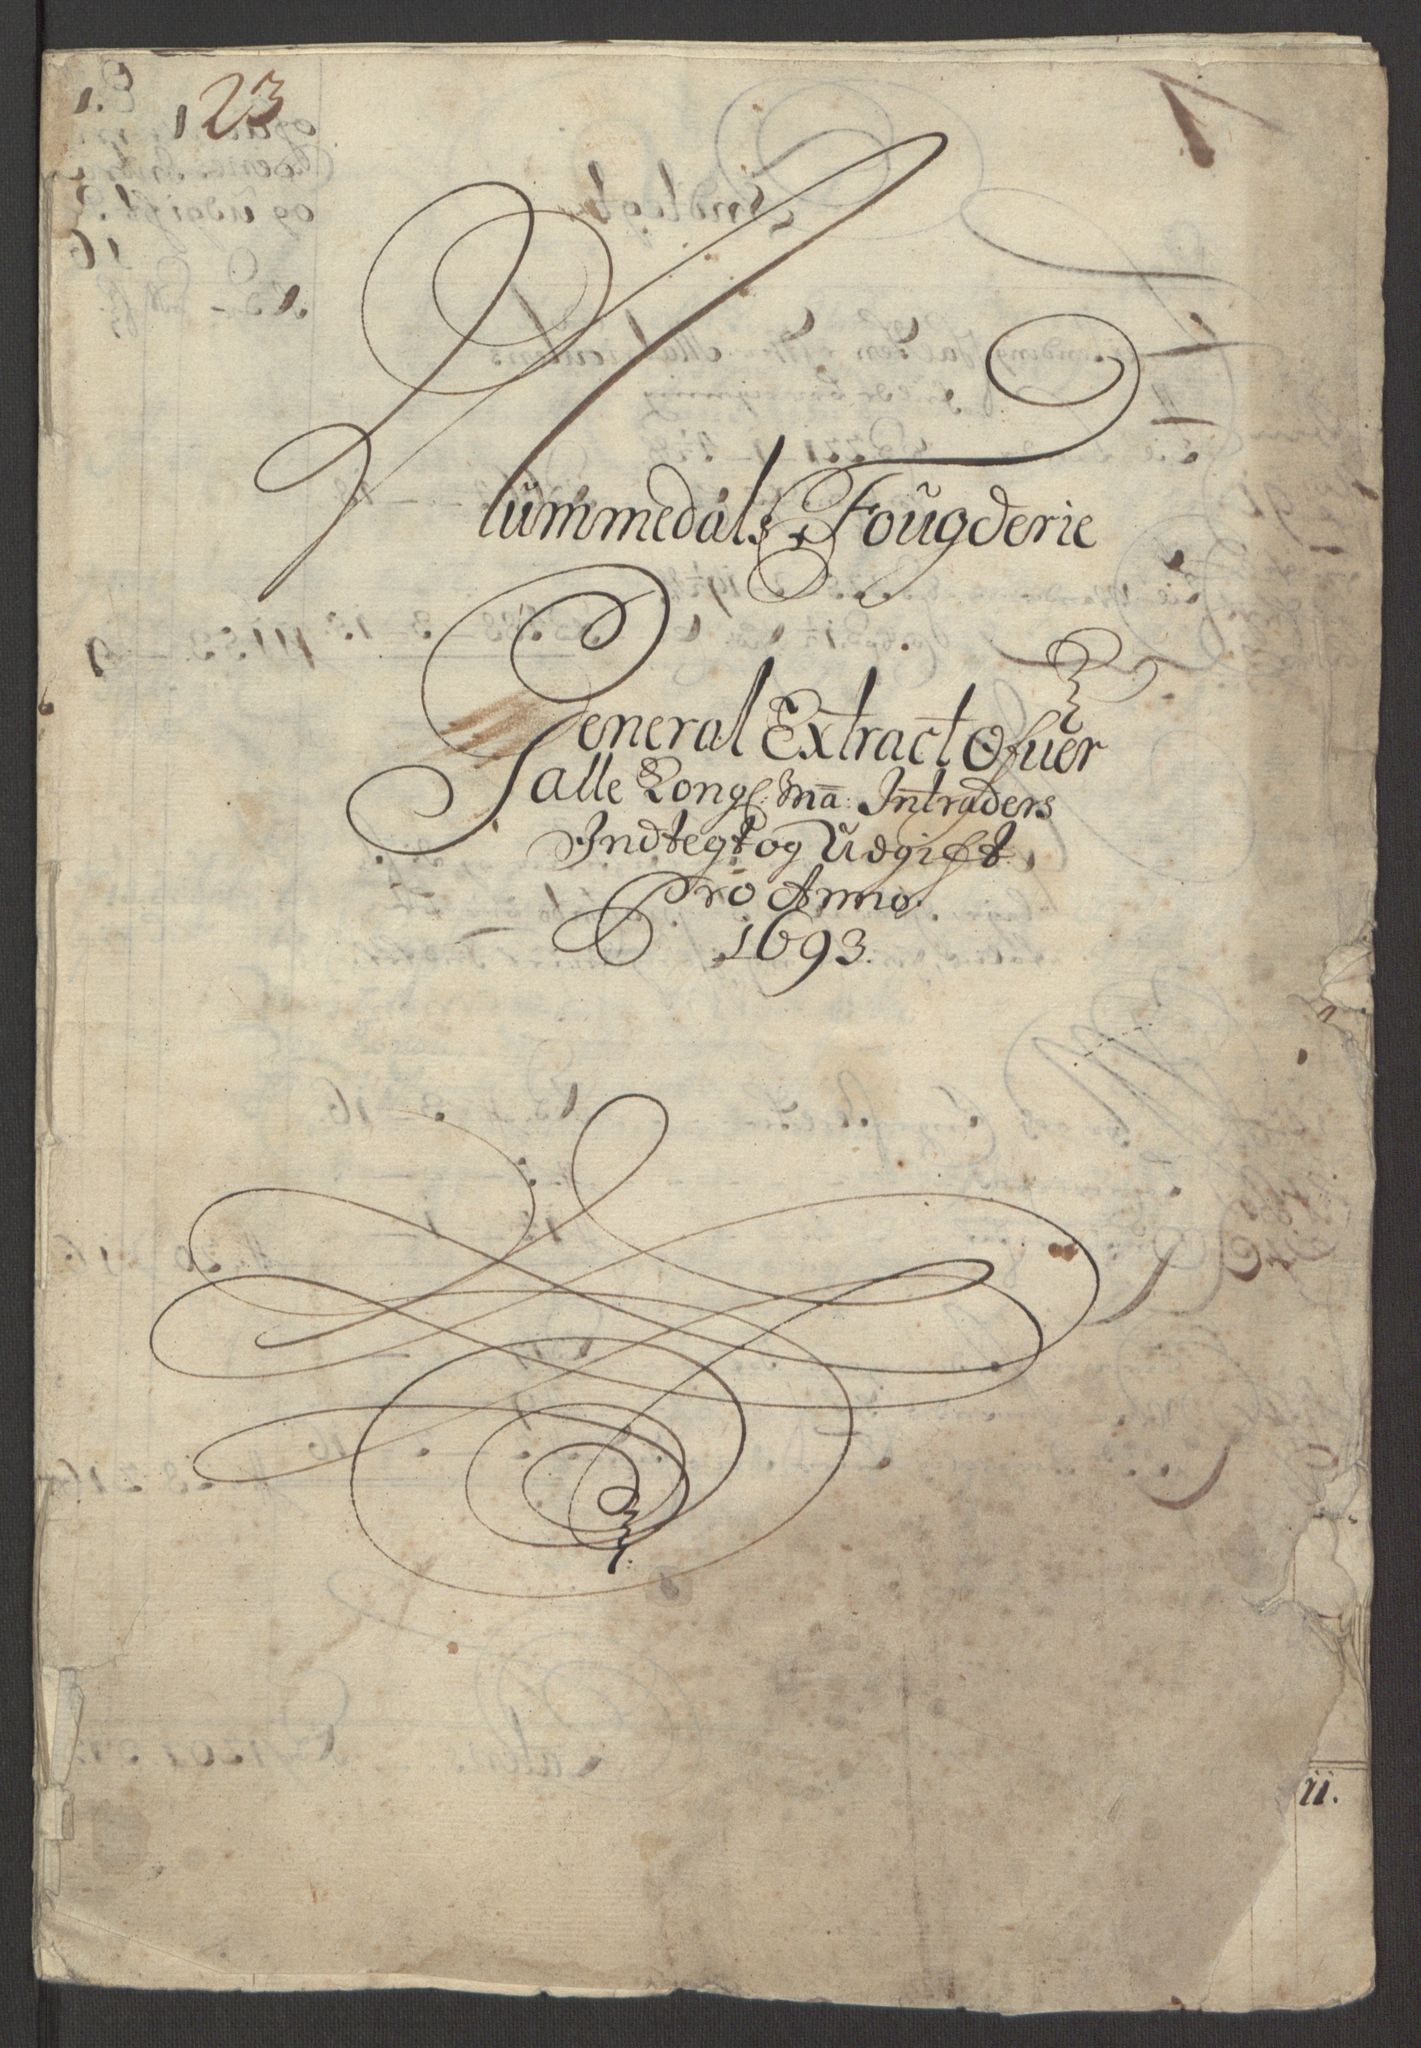 123
1
Nummedals Fougderie
General Extract Ofuer
alle Kongl: Ma: Intraders
Indtegt og Udgift
Pro Anno
1693.
11.